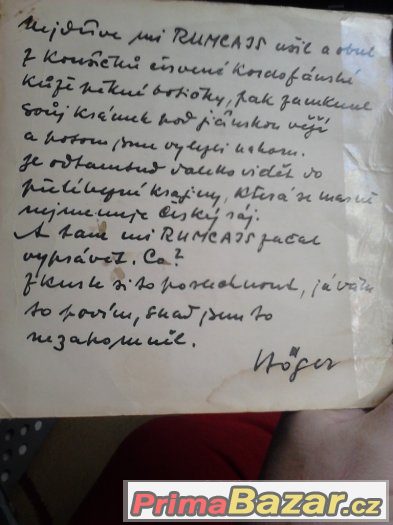 Nejdříve mi RUMCAJS ušil a obul
z koníčků červené kordofánské
kůže pěkné botičky, pak zamknul
svůj krámek pod jičínskou věží
a potom jsme vylezli nahoru.
je odtamtud daleko vidět do
přelíbezné krajiny, která se
nejmenuje Český ráj.
A tam mi RUMCAJS začal
vyprávět. Co?
Zkuste si to poslechnout, já vám
to povím, snad jsem to
nezapomněl.
Höger
PrimaBazar.cz